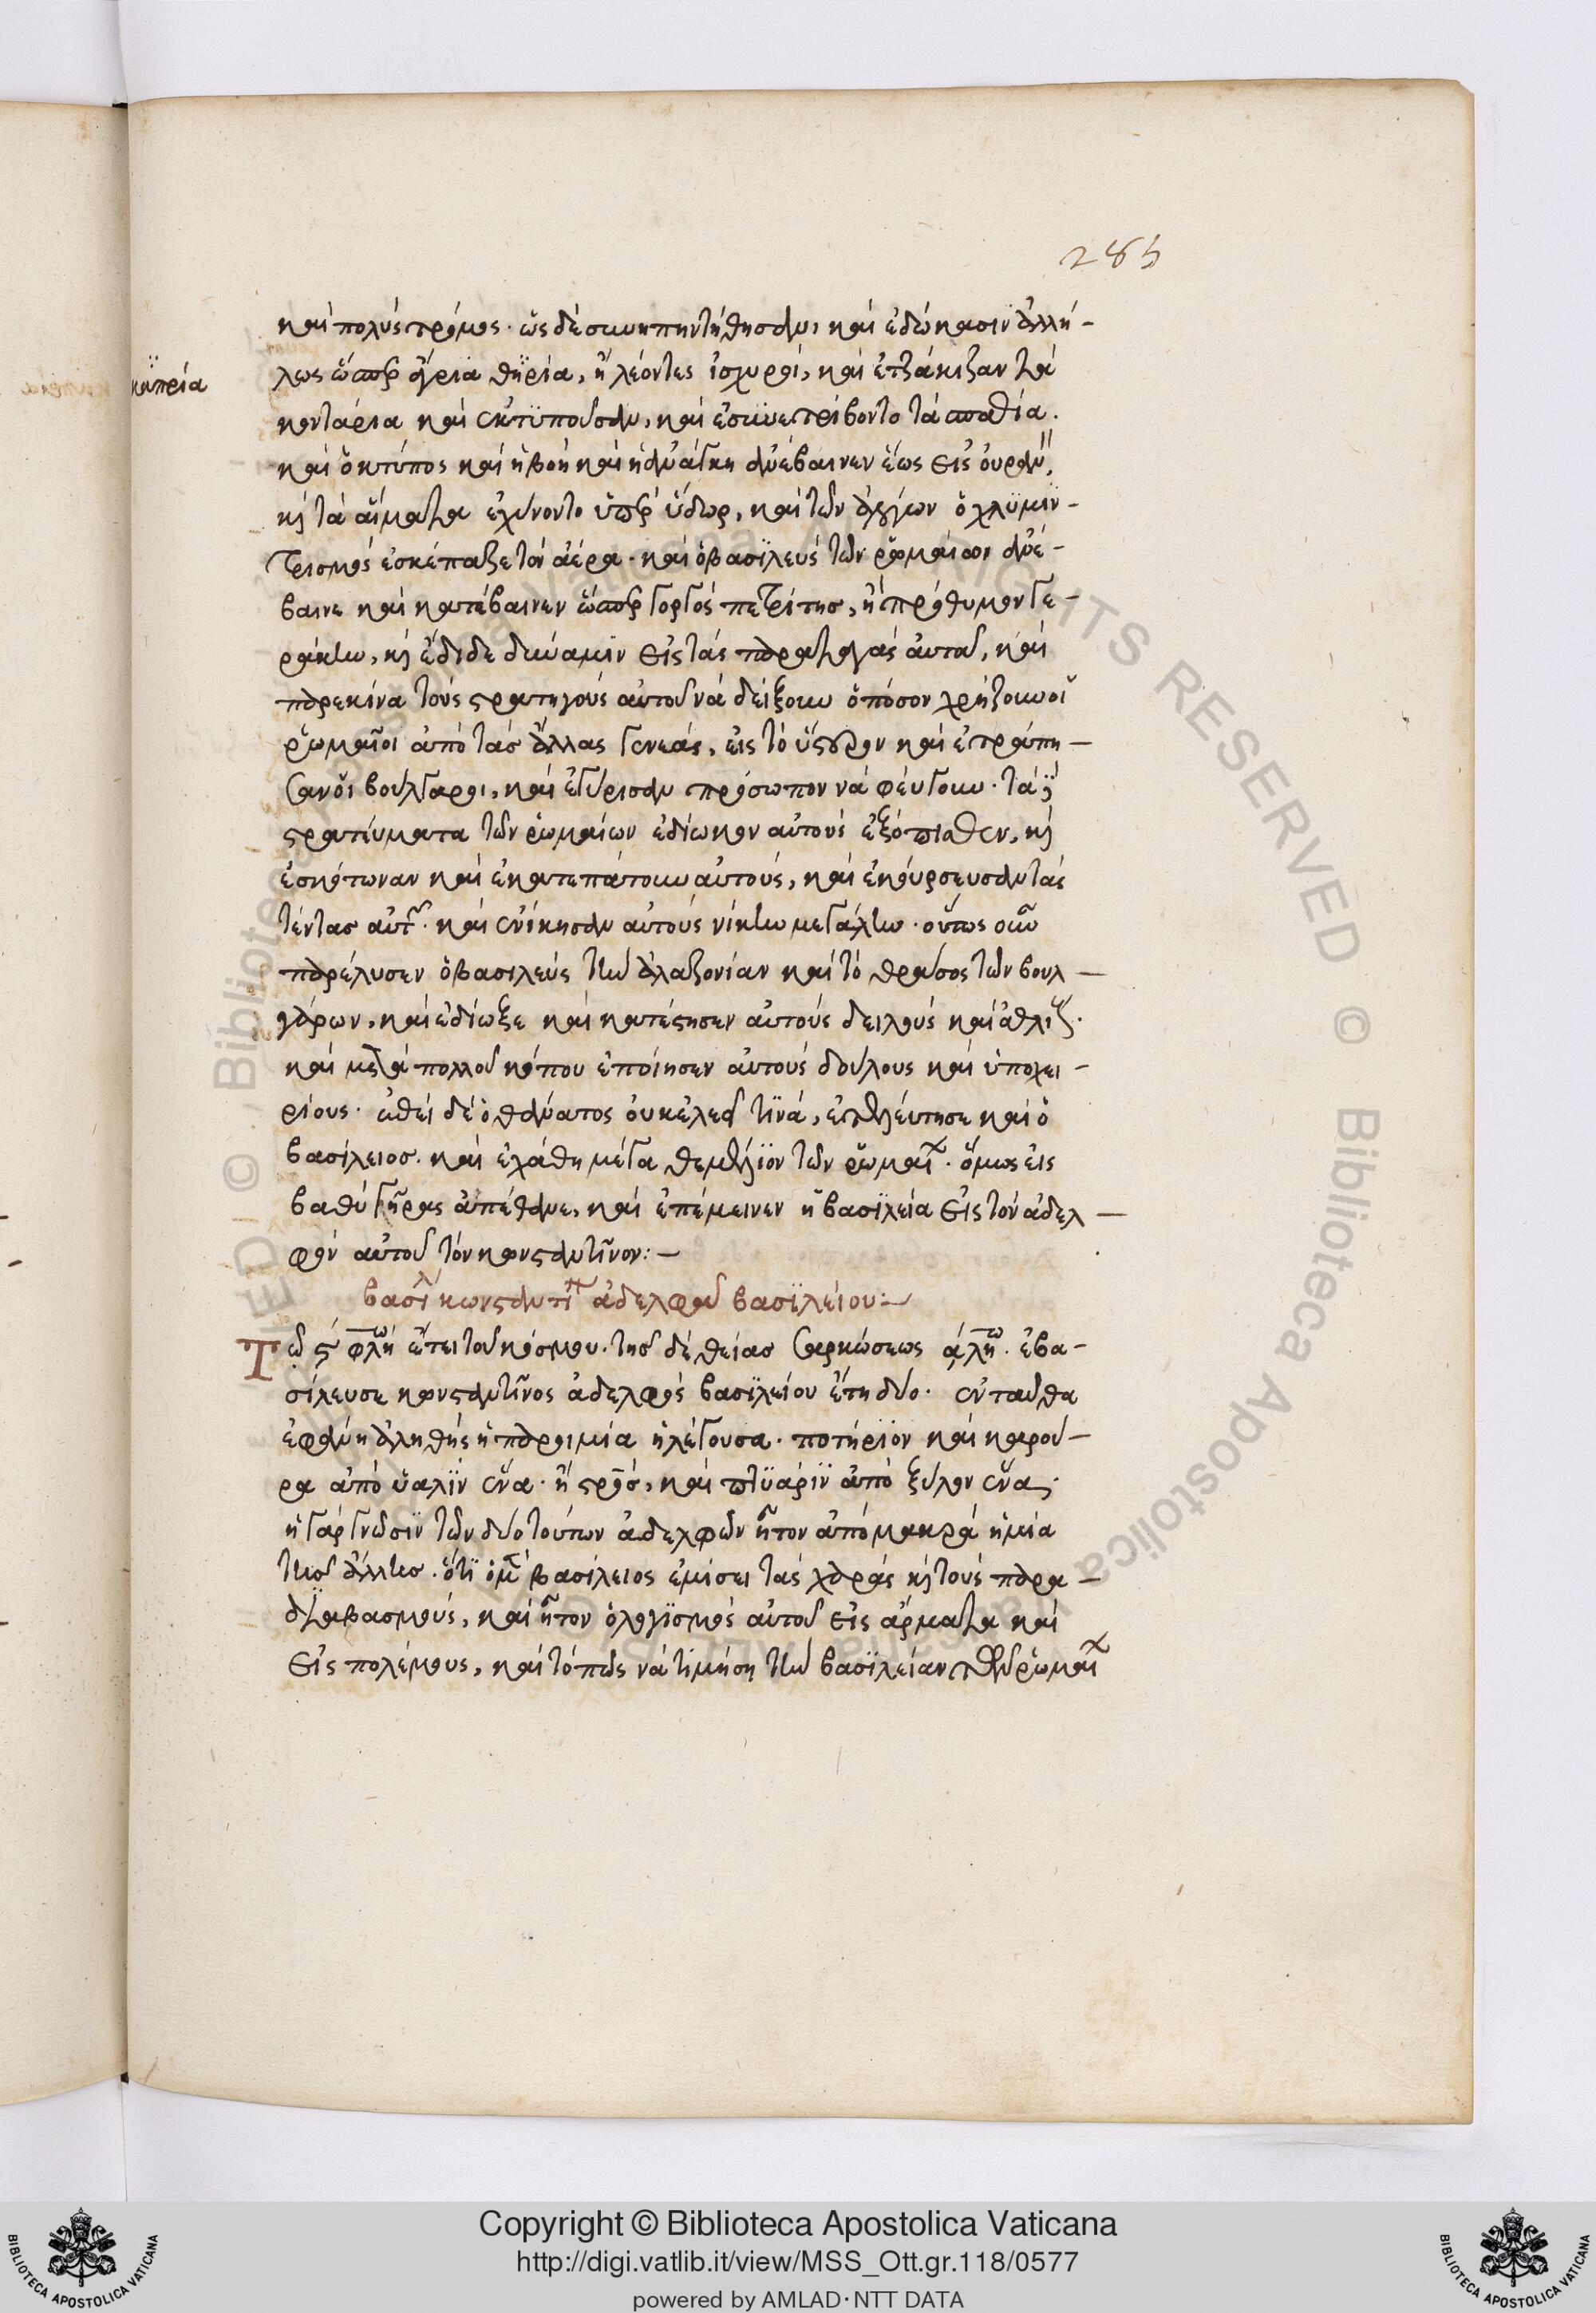 285
καὶ πολὺς τρόμος· ὡς δὲ συνηπηντήθησαν, καὶ ἐδώκασιν ἀλλή-
λως ὥσπερ ἄγρια θηρία, ἢ λέοντες ἰσχυροὶ, καὶ ἐτζάκιζαν τὰ
κυπρία
κοντάρια καὶ ἐκτϋποῦσαν, καὶ ἐσυνετρίβοντο τὰ σπαθία.
καὶ ὁ κτύπος καὶ ἡ βοὴ καὶ ἡ ἀνάγκη ἀνέβαινεν ἕως εἰς οὐραν,
κὶ τὰ αἵματα ἐχύνοντο ὑπὲρ ὕδωρ, καὶ τῶν ἀλόγων ὁ χλϋμιν-
τρισμὸς ἐσκέπαζε τὸν ἀέρα· καὶ ὁ βασϊλεὺς τῶν ῥωμαίων ἀνέ-
βαινε καὶ κατέβαινεν ὥσπερ γοργὸς πετρίτης, ἢ πρόθυμον γε-
ράκιν, κὶ ἔδιδε δύναμιν εἰς τὰς παραταγὰς αὐτοῦ, καὶ
παρεκίνα τοὺς στρατηγοὺς αὐτοῦ νὰ δείξουν ὁπόσον χρήζουν οἱ
ῥωμαῖοι ἀπὸ τὰς ἄλλας γενεάς, εἰς τὸ ὕστερον καὶ ἐτράπη-
σαν οἱ βούλγαροι, καὶ ἐγύρισαν πρόσωπον νὰ φεύγουν· τὰ
στρατεύματα τῶν ῥωμαίων ἐδίωκον αὐτοὺς ἐξόπισθεν, κὶ
ἐσκότωναν καὶ ἐκατεπάτουν αὐτούς, καὶ ἐκούρσευσαν τὰς
τέντας αὐτ· καὶ ἐνίκησαν αὐτοὺς νίκην μεγάλην· οὕτως οὖν
παρέλυσεν ὁ βασιλεὺς τὴν ἀλαζονίαν καὶ τὸ θράσος τῶν βουλ-
γάρων, καὶ ἐδίωξε καὶ κατέστησεν αὐτοὺς δειλοὺς καὶ ἀθλί
καὶ μετὰ πολλοῦ κόπου ἐποίησεν αὐτοὺς δούλους καὶ ὑποχει-
ρίους· ἐπεὶ δὲ ὁ θάνατος οὐκ ἐλεεῖ τινὰ, ἐτελεύτησε καὶ ὁ
βασίλειος· καὶ ἐχάθη μέγα θεμέλϊον τῶν ῥωμαί· ὅμως εἰς
βαθὺ γῆρας ἀπέθανε, καὶ ἐπέμεινεν ἡ βασϊλεία εἰς τὸν ἀδελ-
φὸν αὐτοῦ τὸν κονσταντῖνον:-
βασϊλ κωνσταντί ἀδελφοῦ βασϊλείου:-
Τῶ ϛφλη ἔτει τοῦ κόσμου· τῆς δὲ θείας σαρκώσεως ͵αλη· ἐβα-
σίλευσε κονσταντῖνος ἀδελφὸς βασϊλείου ἔτη δύο· ἐνταῦθα
ἐφάνη ἀληθὴς ἡ παροιμία ἡ λέγουσα· ποτήρϊον καὶ καρού-
ρα ἀπὸ ὑαλῒν ἕνα· καὶ πτϋάρϊν ἀπὸ ξύλον ἕνα·
ἡ γὰρ γνῶσϊν τῶν δύο τούτων ἀδελφῶν ἦτον ἀπὸ μακρὰ ἡ μία
τῆς ἄλλης· ὅτϊ ὁ μὲν βασίλειος ἐμίσει τὰς χαρὰς κὶ τοὺς παρα-
διαβασμούς, καὶ ἦτον ὁ λογϊσμὸς αὐτοῦ εἰς ἄρματα καὶ
εἰς πολέμους, καὶ τὸ πῶς νὰ τϊμήση τὴν βασϊλείαν τῶν ῥωμαί
Copyright © Biblioteca Apostolica Vaticana
http://digi.vatlib.it/view/MSS_Ott.gr.118/0577
powered by AMLAD·NTT DATA